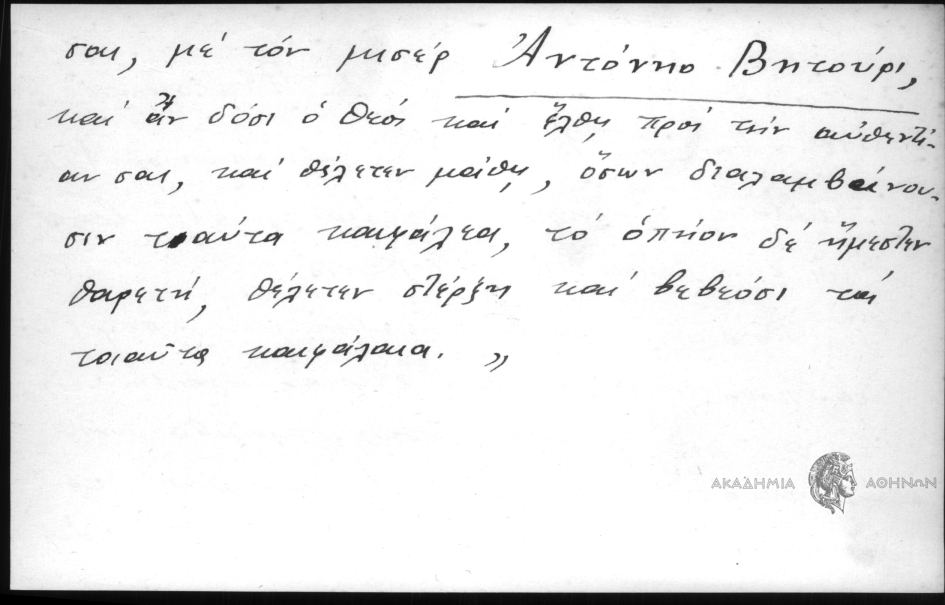 σας, μέ τόν μισέρ Ἀντόνηο Βητούρι,
καί ἄν δόσι ὁ θεός καί ἔλθῃ πρός τήν αὐθεντί-
αν σας, καί θέλετεν μάθῃ, ὅσων διαλαμβάνου-
σιν τοιαύτα καιφάλεα, τό ὁπήον δέ ἤμεστεν
θαρετή, θέλετεν στέρξῃ καί βεβεόσι τά
τοιαῦτα καιφάλαια. "
ΑΚΑΔΗΜΙΑ ΑΘΗΝΩΝ